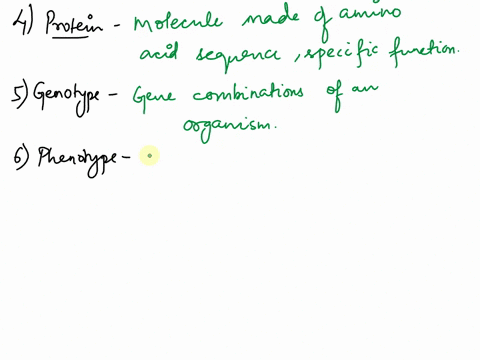 4) Protein - Molecule made of amino
acid sequence, specific function.
5) Genotype - Gene combinations of an
organism.
6) Phenotype -